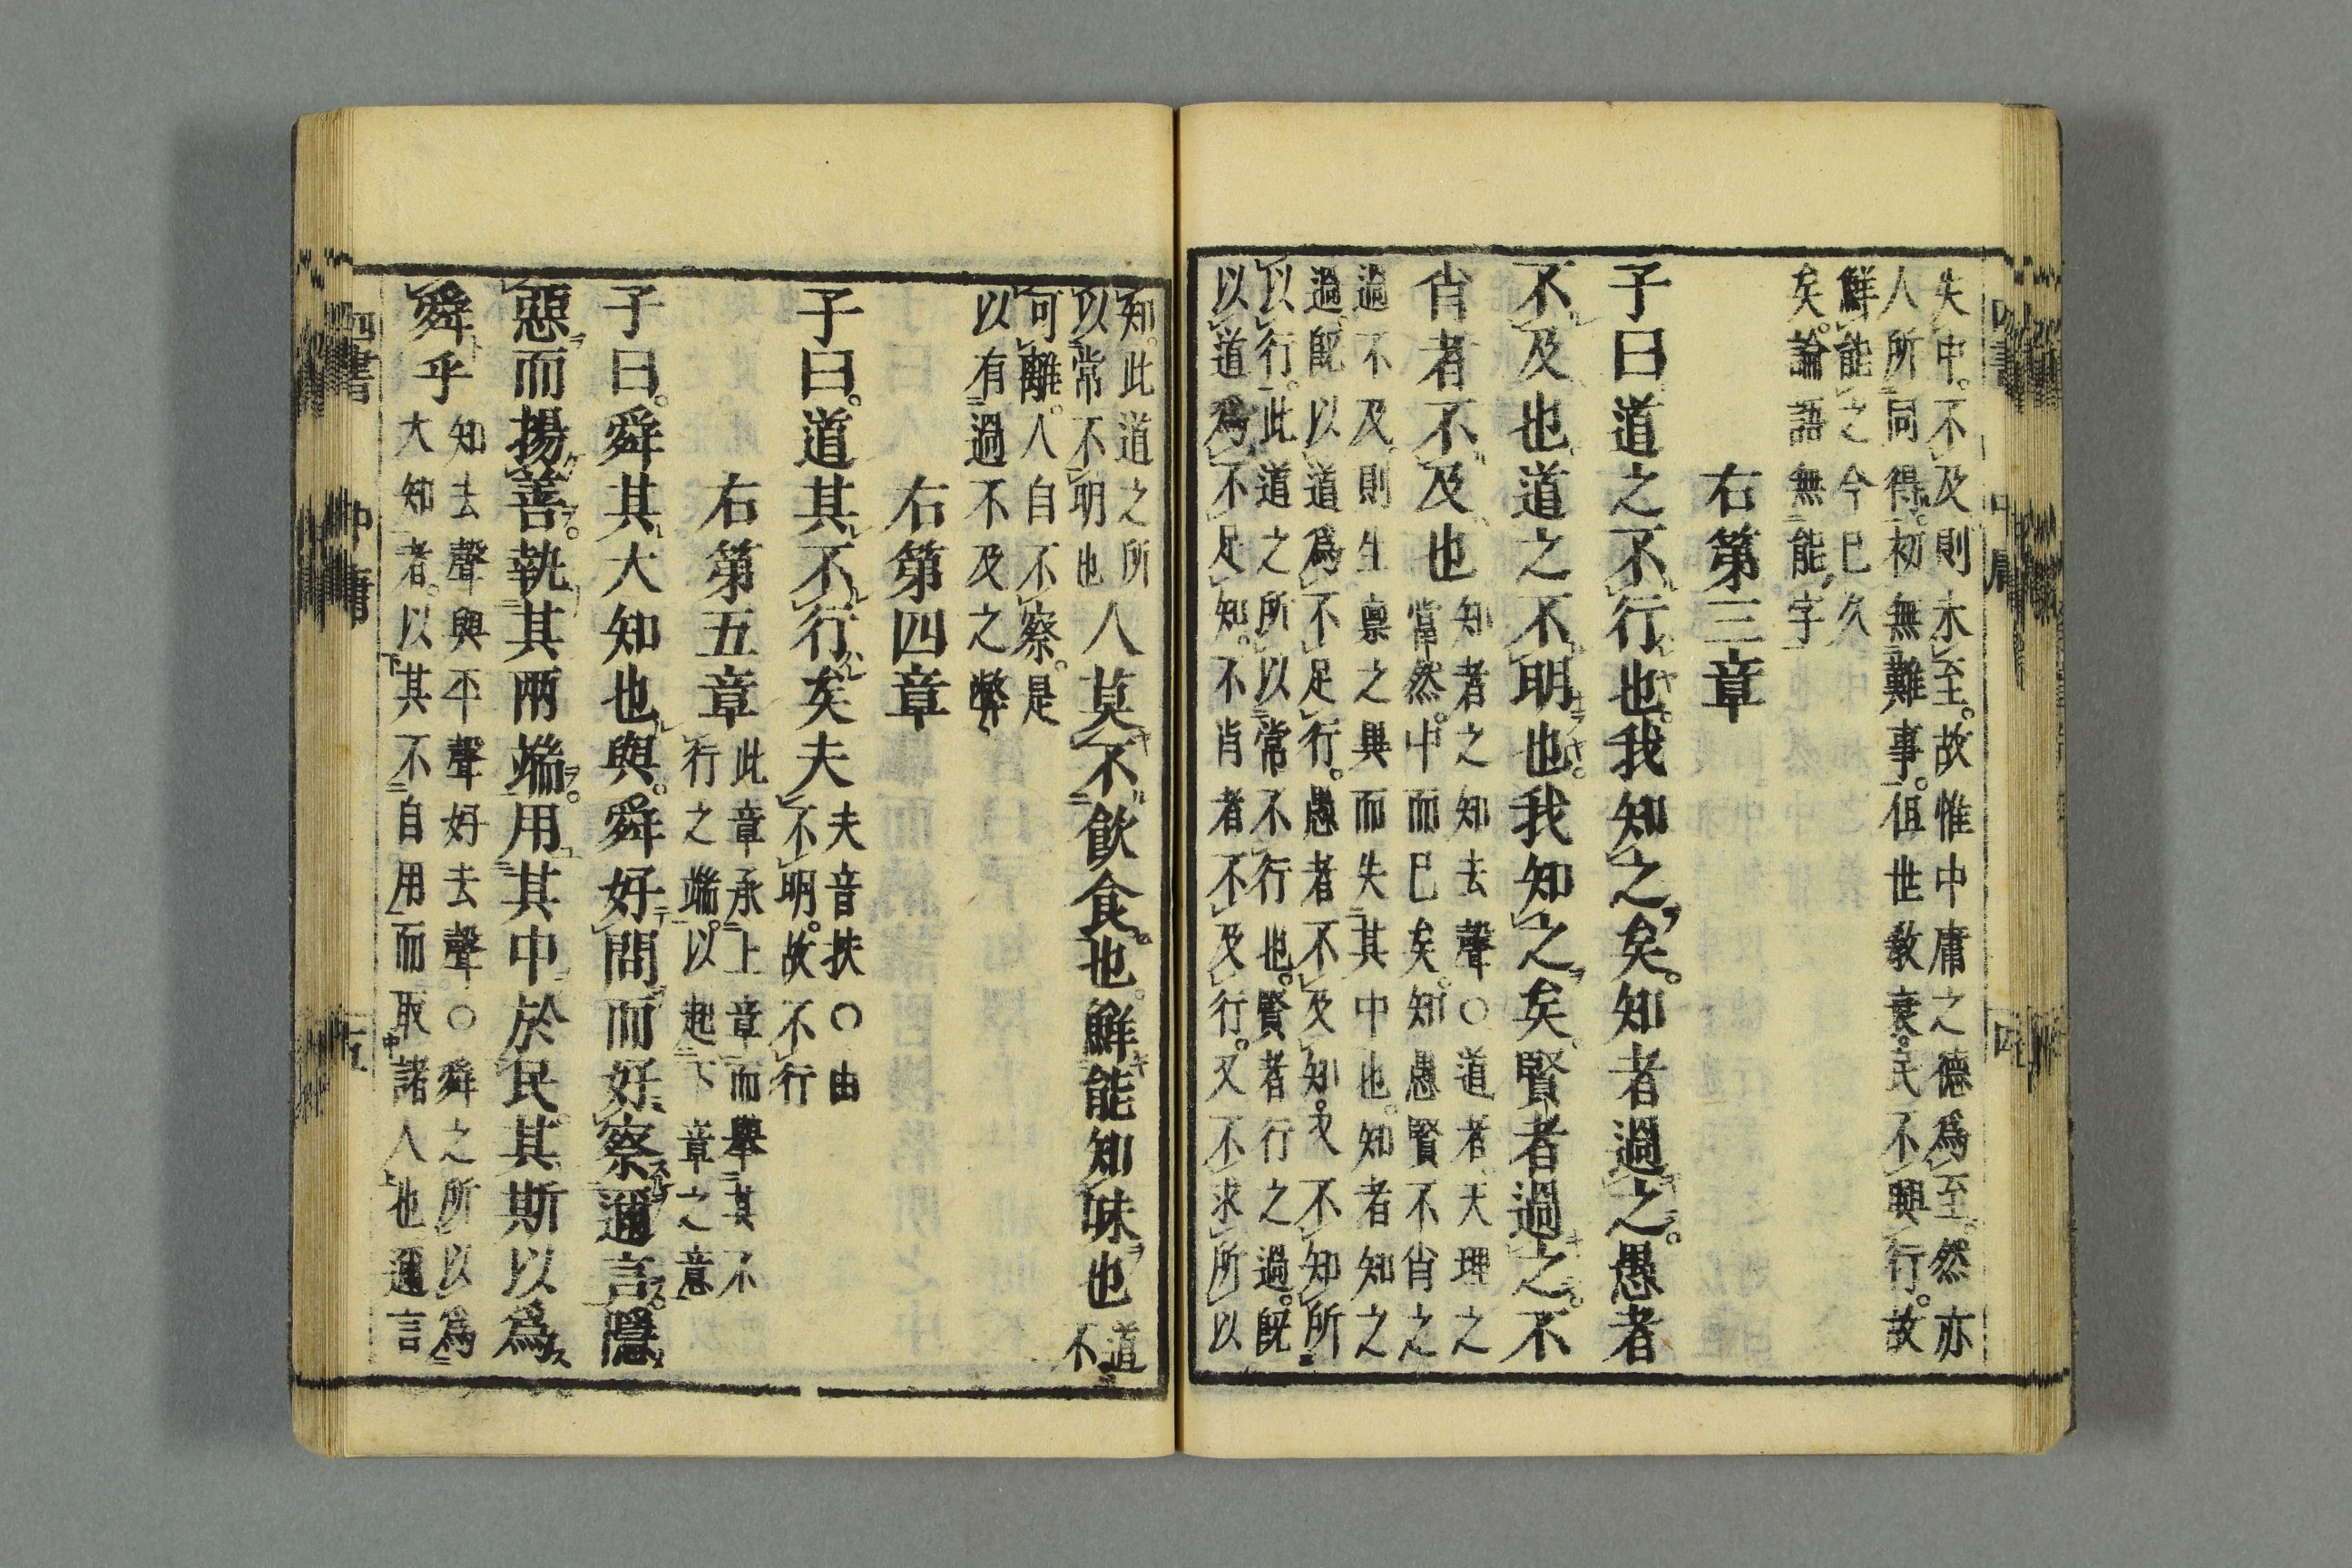 失中。不及則未至。故惟中庸之德爲至。然亦
人所同得。初無難事。但世教衰。民不興行。故
鮮能之今已久
矣。論語無能字
右第三章
子曰道之不行也。我知之矣。知者過之。愚者
不及也。道之不明也。我知之矣。賢者過之。不
肖者不及也
知者之知去聲○道者天理之
當然。中而已矣。知愚賢不肖之
過不及。則生禀之異而失其中也。知者知之
過。旣以道爲不足行。愚者不及知。又不知所
以行。此道之所以常不行也。賢者行之過。旣
以道爲不足知。不肖者不及行。又不求所以
知。此道之所
以常不明也
人莫不飮食也。鮮能知味也
道不
可離。人自不察。是
以有過不及之弊
右第四章
子曰。道其不行矣夫
夫音扶○由
不明。故不行
右第五章
此章承上章而舉其不
行之端。以起下章之意
子曰。舜其大知也與。舜好問而好察邇言。隱
惡而揚善。執其兩端。用其中於民。其斯以爲
舜乎
知去聲與平聲好去聲○舜之所以爲
大知者。以其不自用而取諸人也邇言
四書 中庸 四
四書 中庸 五